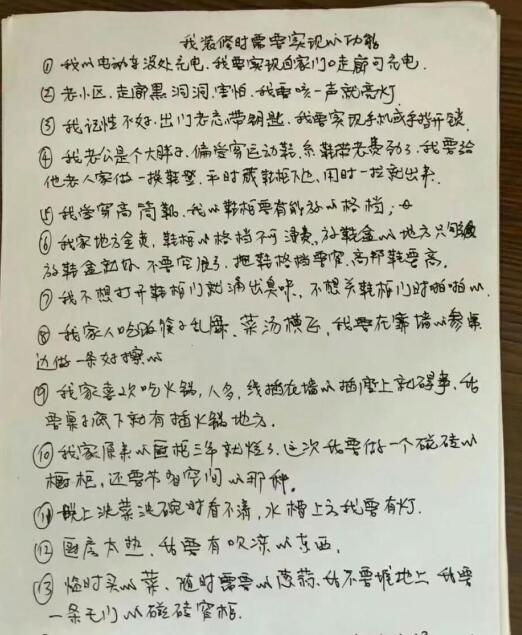 我装修时需要实现的功能
① 我的电动车没处充电,我要实现自家门口走廊可充电.
② 老小区,走廊黑洞洞,害怕,我要咳一声就亮灯
③ 我记性不好,出门老忘带钥匙,我要实现手机或手指开锁.
④ 我老公是个大胖子,偏爱穿运动鞋,系鞋带老费劲了,我要给
他老人家做一换鞋凳,平时藏鞋柜下边,用时一拉就出来.
⑤ 我爱穿高筒靴,我的鞋柜要有能放的格档;
⑥ 我家地方金贵,鞋柜的格档不可浪费,放鞋盒的地方只能
放鞋盒就好,不要空很多,拖鞋格档要窄,高帮鞋要高.
⑦ 我不想打开鞋柜门就涌出臭味,不想关鞋柜门时啪啪的.
⑧ 我家人吃饭筷子乱舞,菜汤横飞,我要在靠墙的参桌
边做一条好擦的
⑨ 我家喜欢吃火锅,人多,线插在墙的插座上就碍事,我
要桌子底下就有插火锅地方.
⑩ 我家原来的厨柜三年就烂了,这次我要做一个磁砖的
橱柜,还要节省空间的那种.
⑪ 晚上洗菜洗碗时看不清,水槽上方我要有灯.
⑫ 厨房太热,我要有吹凉的东西.
⑬ 临时买的菜,随时需要的葱蒜,我不要堆地上,我要
一条无门的磁砖窄柜.